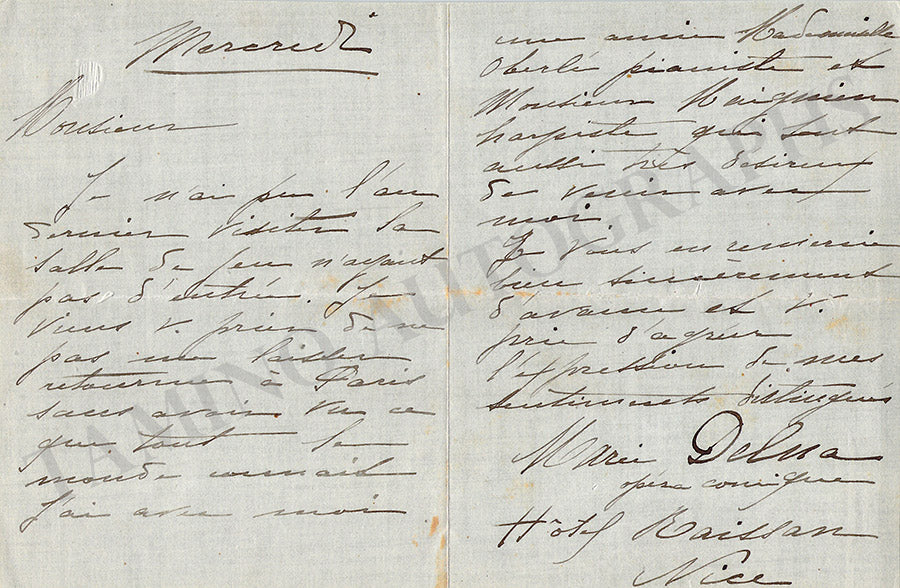 Mercredi
Monsieur
Je n'ai pu l'an
dernier visiter la
salle de jeu n'ayant
pas d'entrée. Je
viens v. prier de ne
pas me laisser
retourner à Paris
sans avoir vu ce
que tout le
monde connait
J'ai avec moi
une amie Mademoiselle
Oberlé pianiste et
Monsieur Maignien
harpiste qui sont
aussi très désireux
de venir avec
moi
Je vous en remercie
bien sincèrement
d'avance et v.
prie d'agréer
l'expression de mes
sentiments distingués
Marie Delna
opéra comique
Hôtel Raissan
Nice
TAMINO AUTOGRAPHS